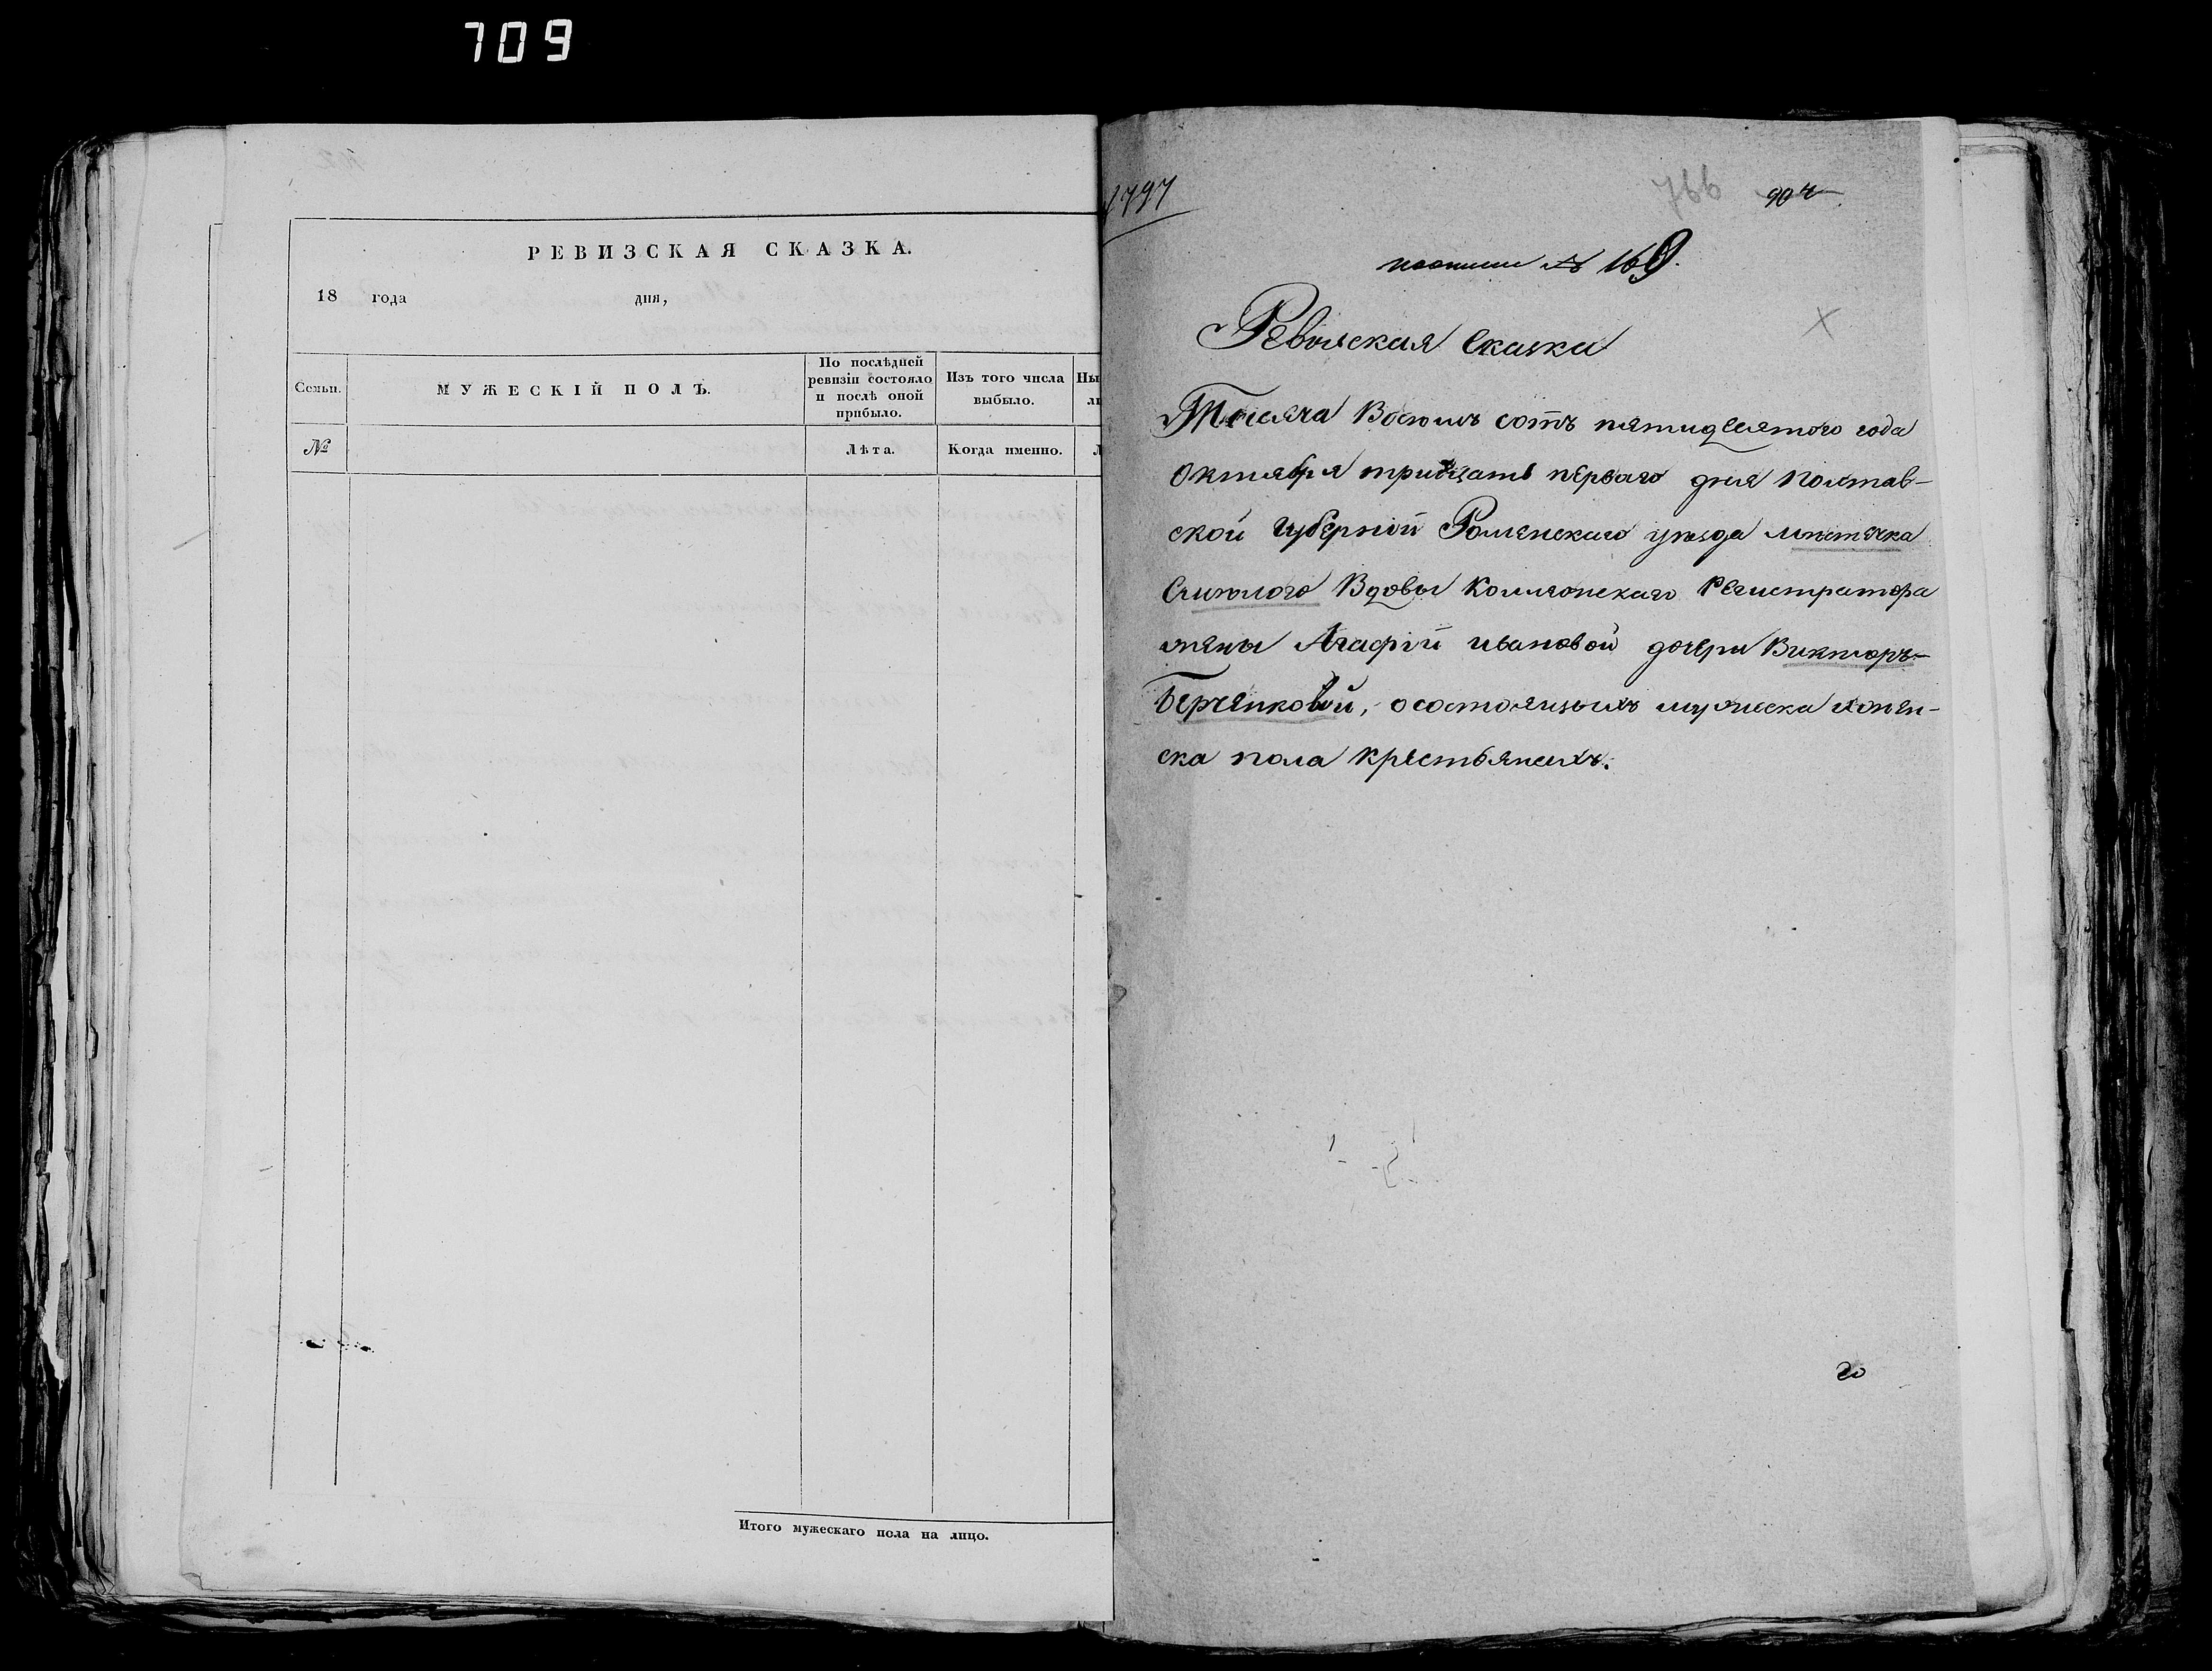 709
РЕВИЗСКАЯ СКАЗКА.
18 года дня,
Семьи.
МУЖЕСКІЙ ПОЛЪ.
По послѣдней ревизіи состояло и послѣ оной прибыло.
Изъ того числа выбыло.
№
Лѣта.
Когда именно.
Итого мужескаго пола на лицо.
1797
766
904
№ 169.
Ревизская Сказка
Тысяча Восемъ сотъ пятидесятого года
Октября тридцать перваго дня Полтав-
ской Губерніи Роменскаго уезда мѣстечка
Смѣлого Вдовы Коллежскаго Регистратора
жены Агафіи ивановой дочери Викторъ-
Берченковой, о состоящихъ мужеска иженѣ-
ска пола крестьянехъ.